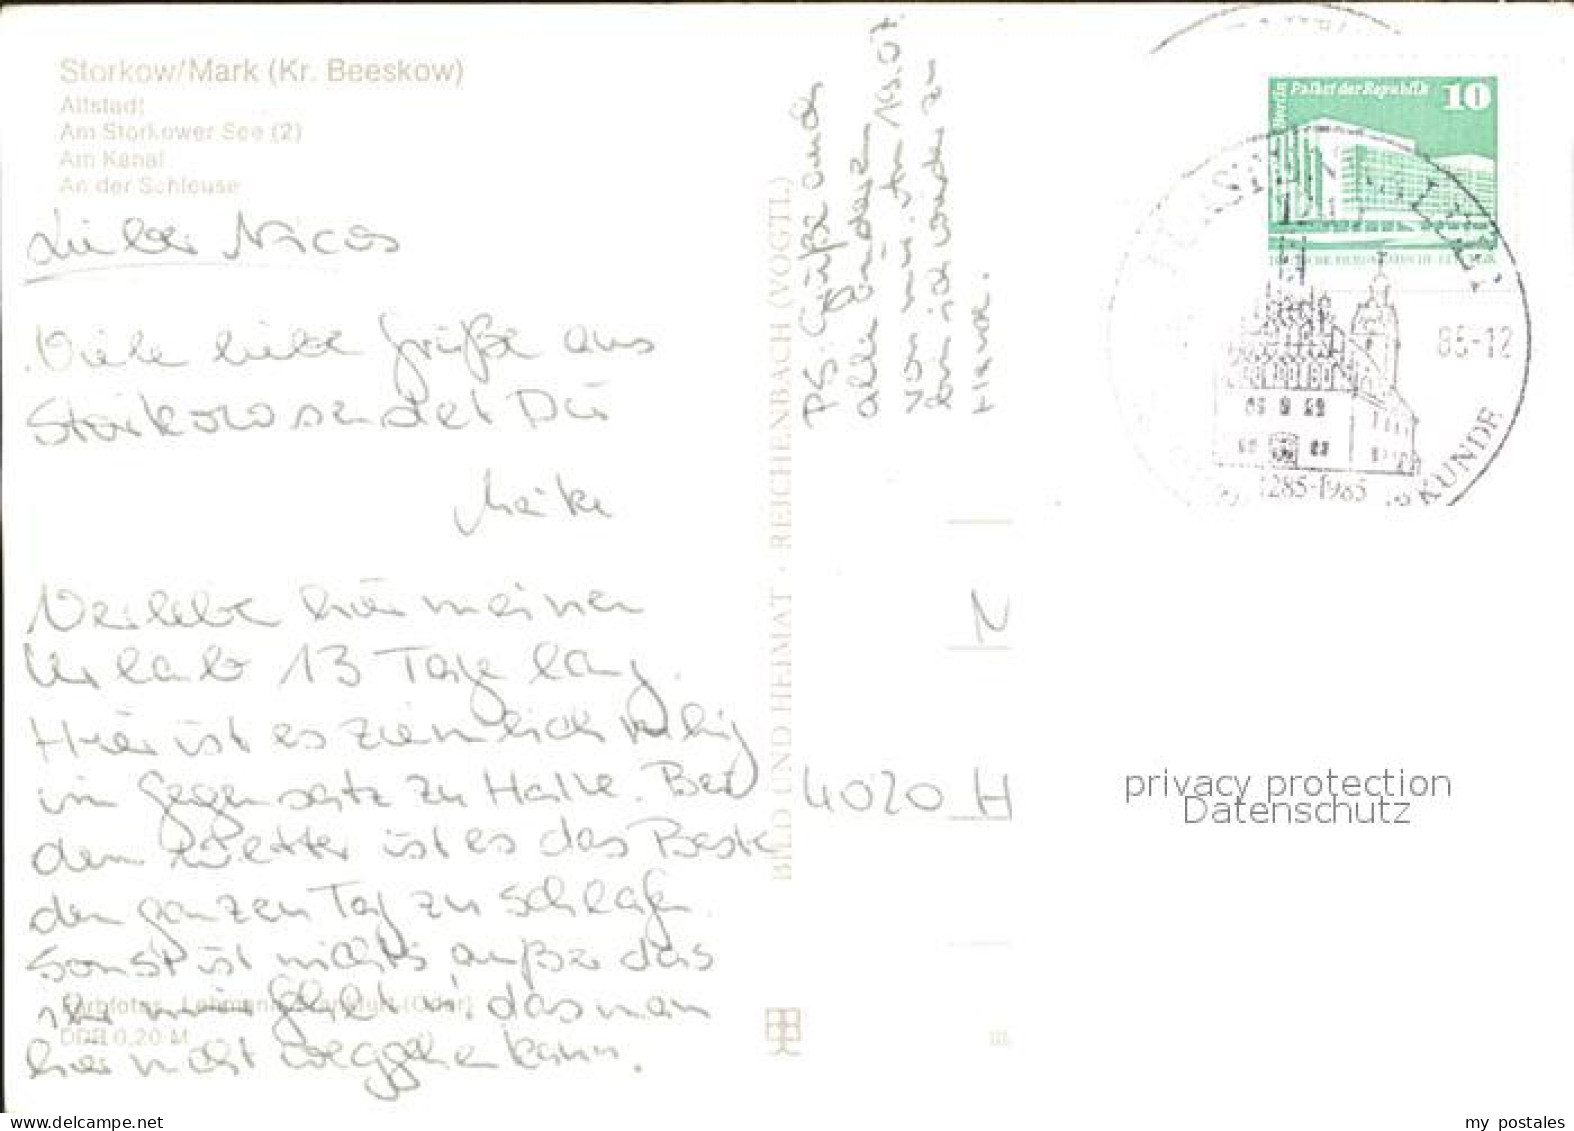 Storkow/Mark (Kr. Beeskow)
Altstadt
Am Storkower See (2)
Am Kanal
An der Schleuse
Lieber Nicos
Viele liebe Grüße aus
Storkow sendet Dir
Heike
Verlebe hier meinen
Urlaub 13 Tage lang.
Hier ist es ziemlich ruhig
im Gegensatz zu Halle. Bei
dem Wetter ist es das Beste
den ganzen Tag zu schlafen.
Sonst ist nichts außer das
ihr mir fehlt u. das man
hier nicht weggehen kann.
Farbfotos: Lehmann, Frankfurt (Oder)
DDR 0,20 M
BILD UND HEIMAT · REICHENBACH (VOGTL)
PS: Grüße auch
alle anderen
von mir
ich wieder zu
4020 H
N
Berlin Palast der Republik 10
85-12
1285-1985
KUNDE
privacy protection
Datenschutz
my postales